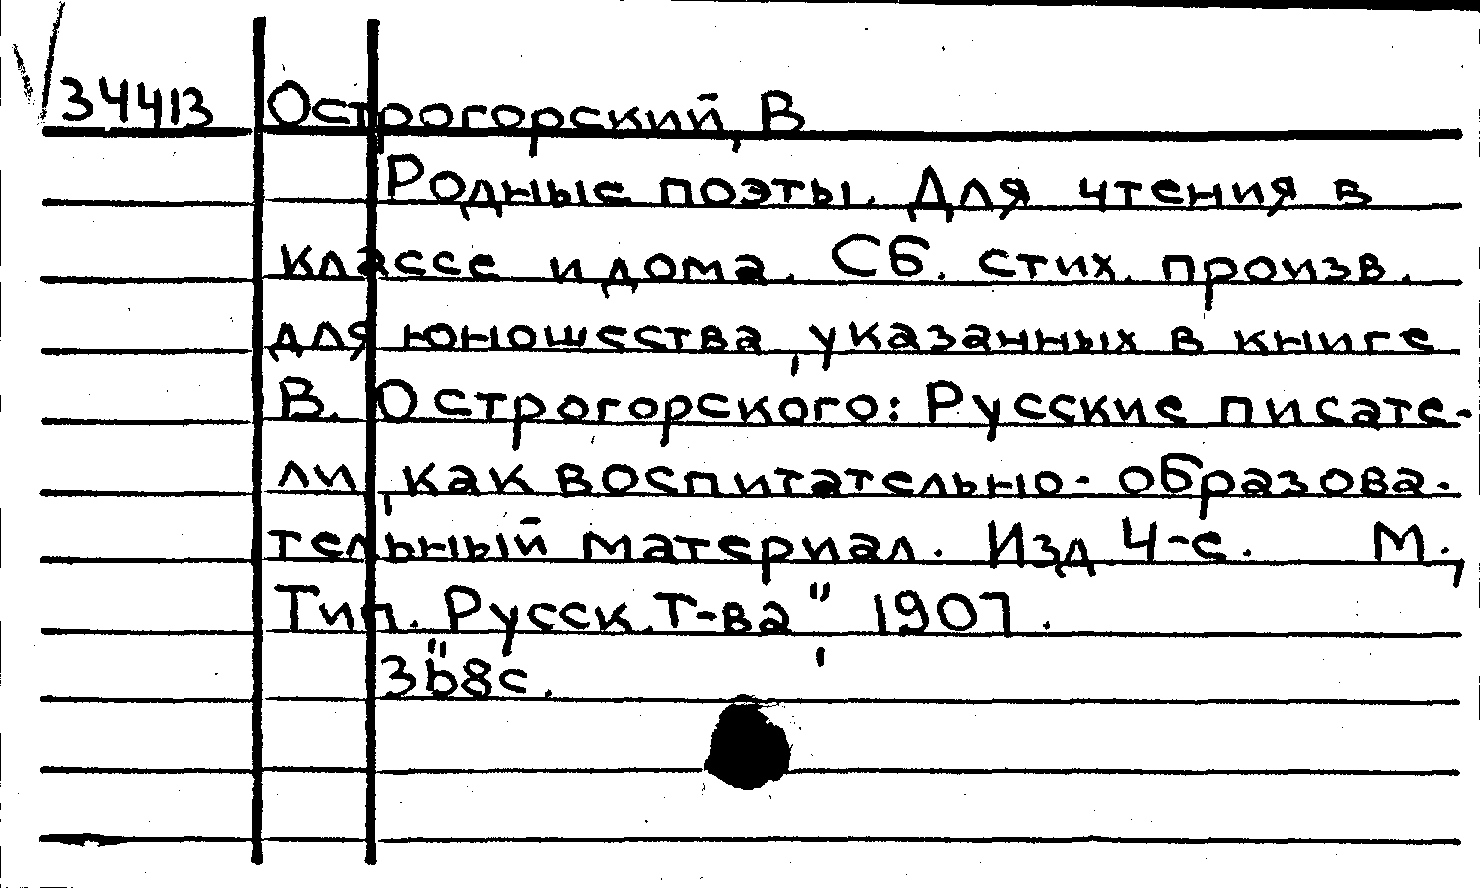 34413 Острогорский, В
Родные поэты. Для чтения в
классе и дома. Сб. стих. произв.
для юношества, указанных в книге
В. Острогорского: Русские писате-
ли, как воспитательно-образова-
тельный материал. Изд 4-е. М.,
Тип. "Русск. Т-ва", 1907.
368с.